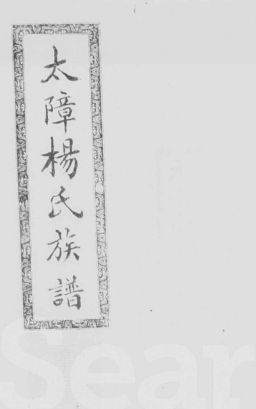 太障楊氏族譜
Sear